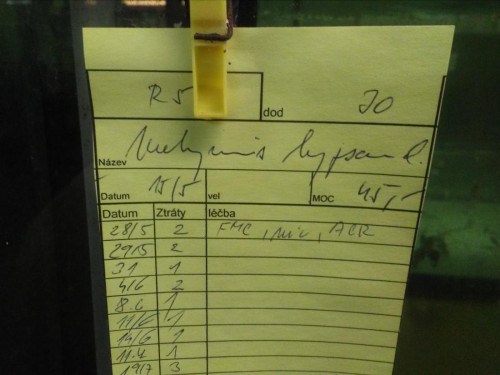 R5 dod 70
Název Metynnis hypsau.
Datum 15/5 vel MOC 45,-
Datum Ztráty léčba
28/5 2 FMC, , ACR
29/5 2
31 1
4/6 2
8.6 1
11/6 1
14/6 1
11.7 1
19/7 3